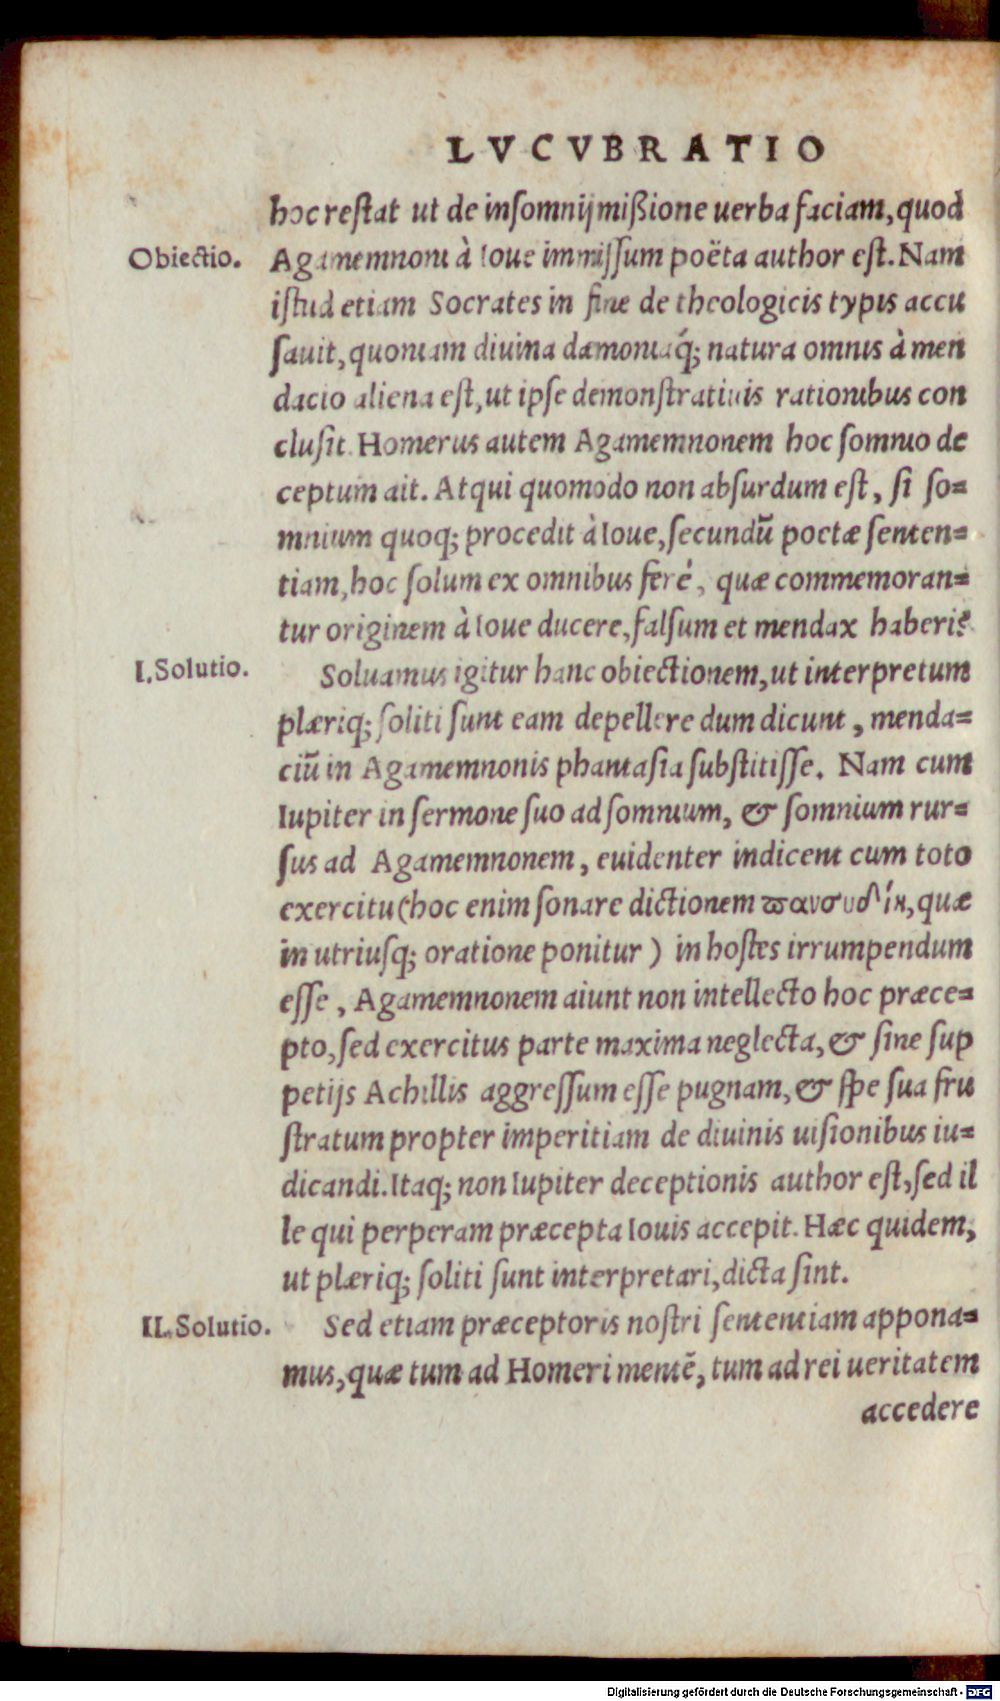 LVCVBRATIO
hoc restat ut de insomnij mißione uerba faciam, quod
Obiectio.
Agamemnoni à Ioue immissum poëta author est. Nam
istud etiam Socrates in fine de theologicis typis accu
sauit, quoniam diuina dæmoniaq́; natura omnis à men
dacio aliena est, ut ipse demonstratiuis rationibus con
clusit. Homerus autem Agamemnonem hoc somnio de
ceptum ait. Atqui quomodo non absurdum est, si so=
mnium quoq; procedit à Ioue, secundũ poetæ senten=
tiam, hoc solum ex omnibus ferè, quæ commemoran=
tur originem à Ioue ducere, falsum et mendax haberi?
I. Solutio.
Soluamus igitur hanc obiectionem, ut interpretum
plæriq; soliti sunt eam depellere dum dicunt, menda=
ciũ in Agamemnonis phantasia substitisse. Nam cum
Iupiter in sermone suo ad somnium, & somnium rur=
sus ad Agamemnonem, euidenter indicent cum toto
exercitu (hoc enim sonare dictionem πανσυδίη, quæ
in utriusq; oratione ponitur) in hostes irrumpendum
esse, Agamemnonem aiunt non intellecto hoc præce=
pto, sed exercitus parte maxima neglecta, & sine sup
petijs Achillis aggressum esse pugnam, & spe sua fru
stratum propter imperitiam de diuinis uisionibus iu=
dicandi. Itaq; non Iupiter deceptionis author est, sed il
le qui perperam præcepta Iouis accepit. Hæc quidem,
ut plæriq; soliti sunt interpretari, dicta sint.
II. Solutio.
Sed etiam præceptoris nostri sententiam appona=
mus, quæ tum ad Homeri mentẽ, tum ad rei ueritatem
accedere
Digitalisierung gefördert durch die Deutsche Forschungsgemeinschaft - DFG